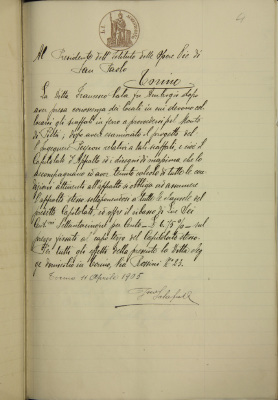 Al Presidente dell'Istituto delle Opere Pie di
San Paolo
Torino
La ditta Francesco Sala fu Ambrogio dopo
aver presa conoscenza dei locali in cui devono col-
locarsi gli scaffali in ferro a provvedersi pel Monte
di Pietà; dopo aver esaminato il progetto del
l'Ingegnere relativi a tali scaffali, e cioè il
Capitolato d'Appalto ed i disegni di massima che lo
accompagnano ed aver tenuto calcolo di tutte le con-
dizioni attinenti all'appalto si obbliga ad assumere
l'appalto stesso sottoponendosi a tutte le clausole del
predetto Capitolato, ed offre il ribasso di Lire Sei
Cent.mi Settantacinque per Cento L. 6,75 % sul
prezzo fissato al capitolo del Capitolato stesso.
Per tutti gli effetti della presente la ditta eleg-
ge domicilio in Torino, Via Rossini N° 23.
Torino 11 Aprile 1905